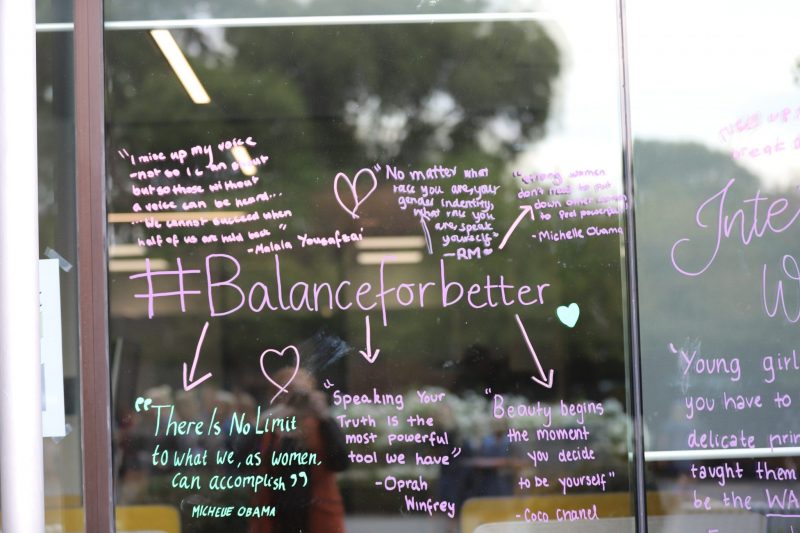 "I raise up my voice
-not so I can shout
but so those without
a voice can be heard...
...We cannot succeed when
half of us are held back"
-Malala Yousafzai
"No matter what
race you are, your
gender indentity,
what race you
are, speak
yourself."
-RM
"Strong women
don't need to put
down other women
to feel powerful"
-Michelle Obama
#Balanceforbetter
"There Is No Limit
to what we, as women,
can accomplish"
MICHELLE OBAMA
"Speaking Your
Truth is the
most powerful
tool we have"
-Oprah
Winfrey
"Beauty begins
the moment
you decide
to be yourself"
-Coco Chanel
break
Inte
W
"Young girl
you have to
delicate prin
taught them
be the WA